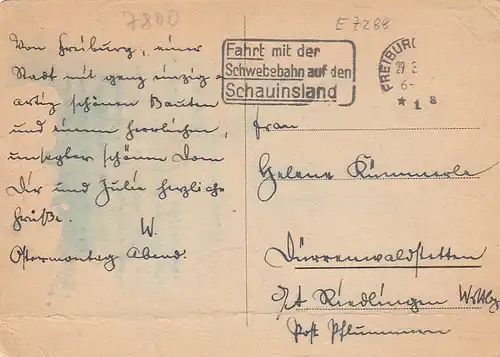 7800
E 7288
Von Freiburg, einer
Stadt mit ganz einzig-
artig schönen Bauten
und einem herrlichen,
unsagbar schönen Dom
Dir und Julie herzliche
Grüße.
W.
Ostermontag Abend.
Fahrt mit der
Schwebebahn auf den
Schauinsland
FREIBURG
29
6-
* 1 8
Frau
Helene Kümmerle
Dürrenwaldstetten
Riedlingen Wttbg
Post Pflummern